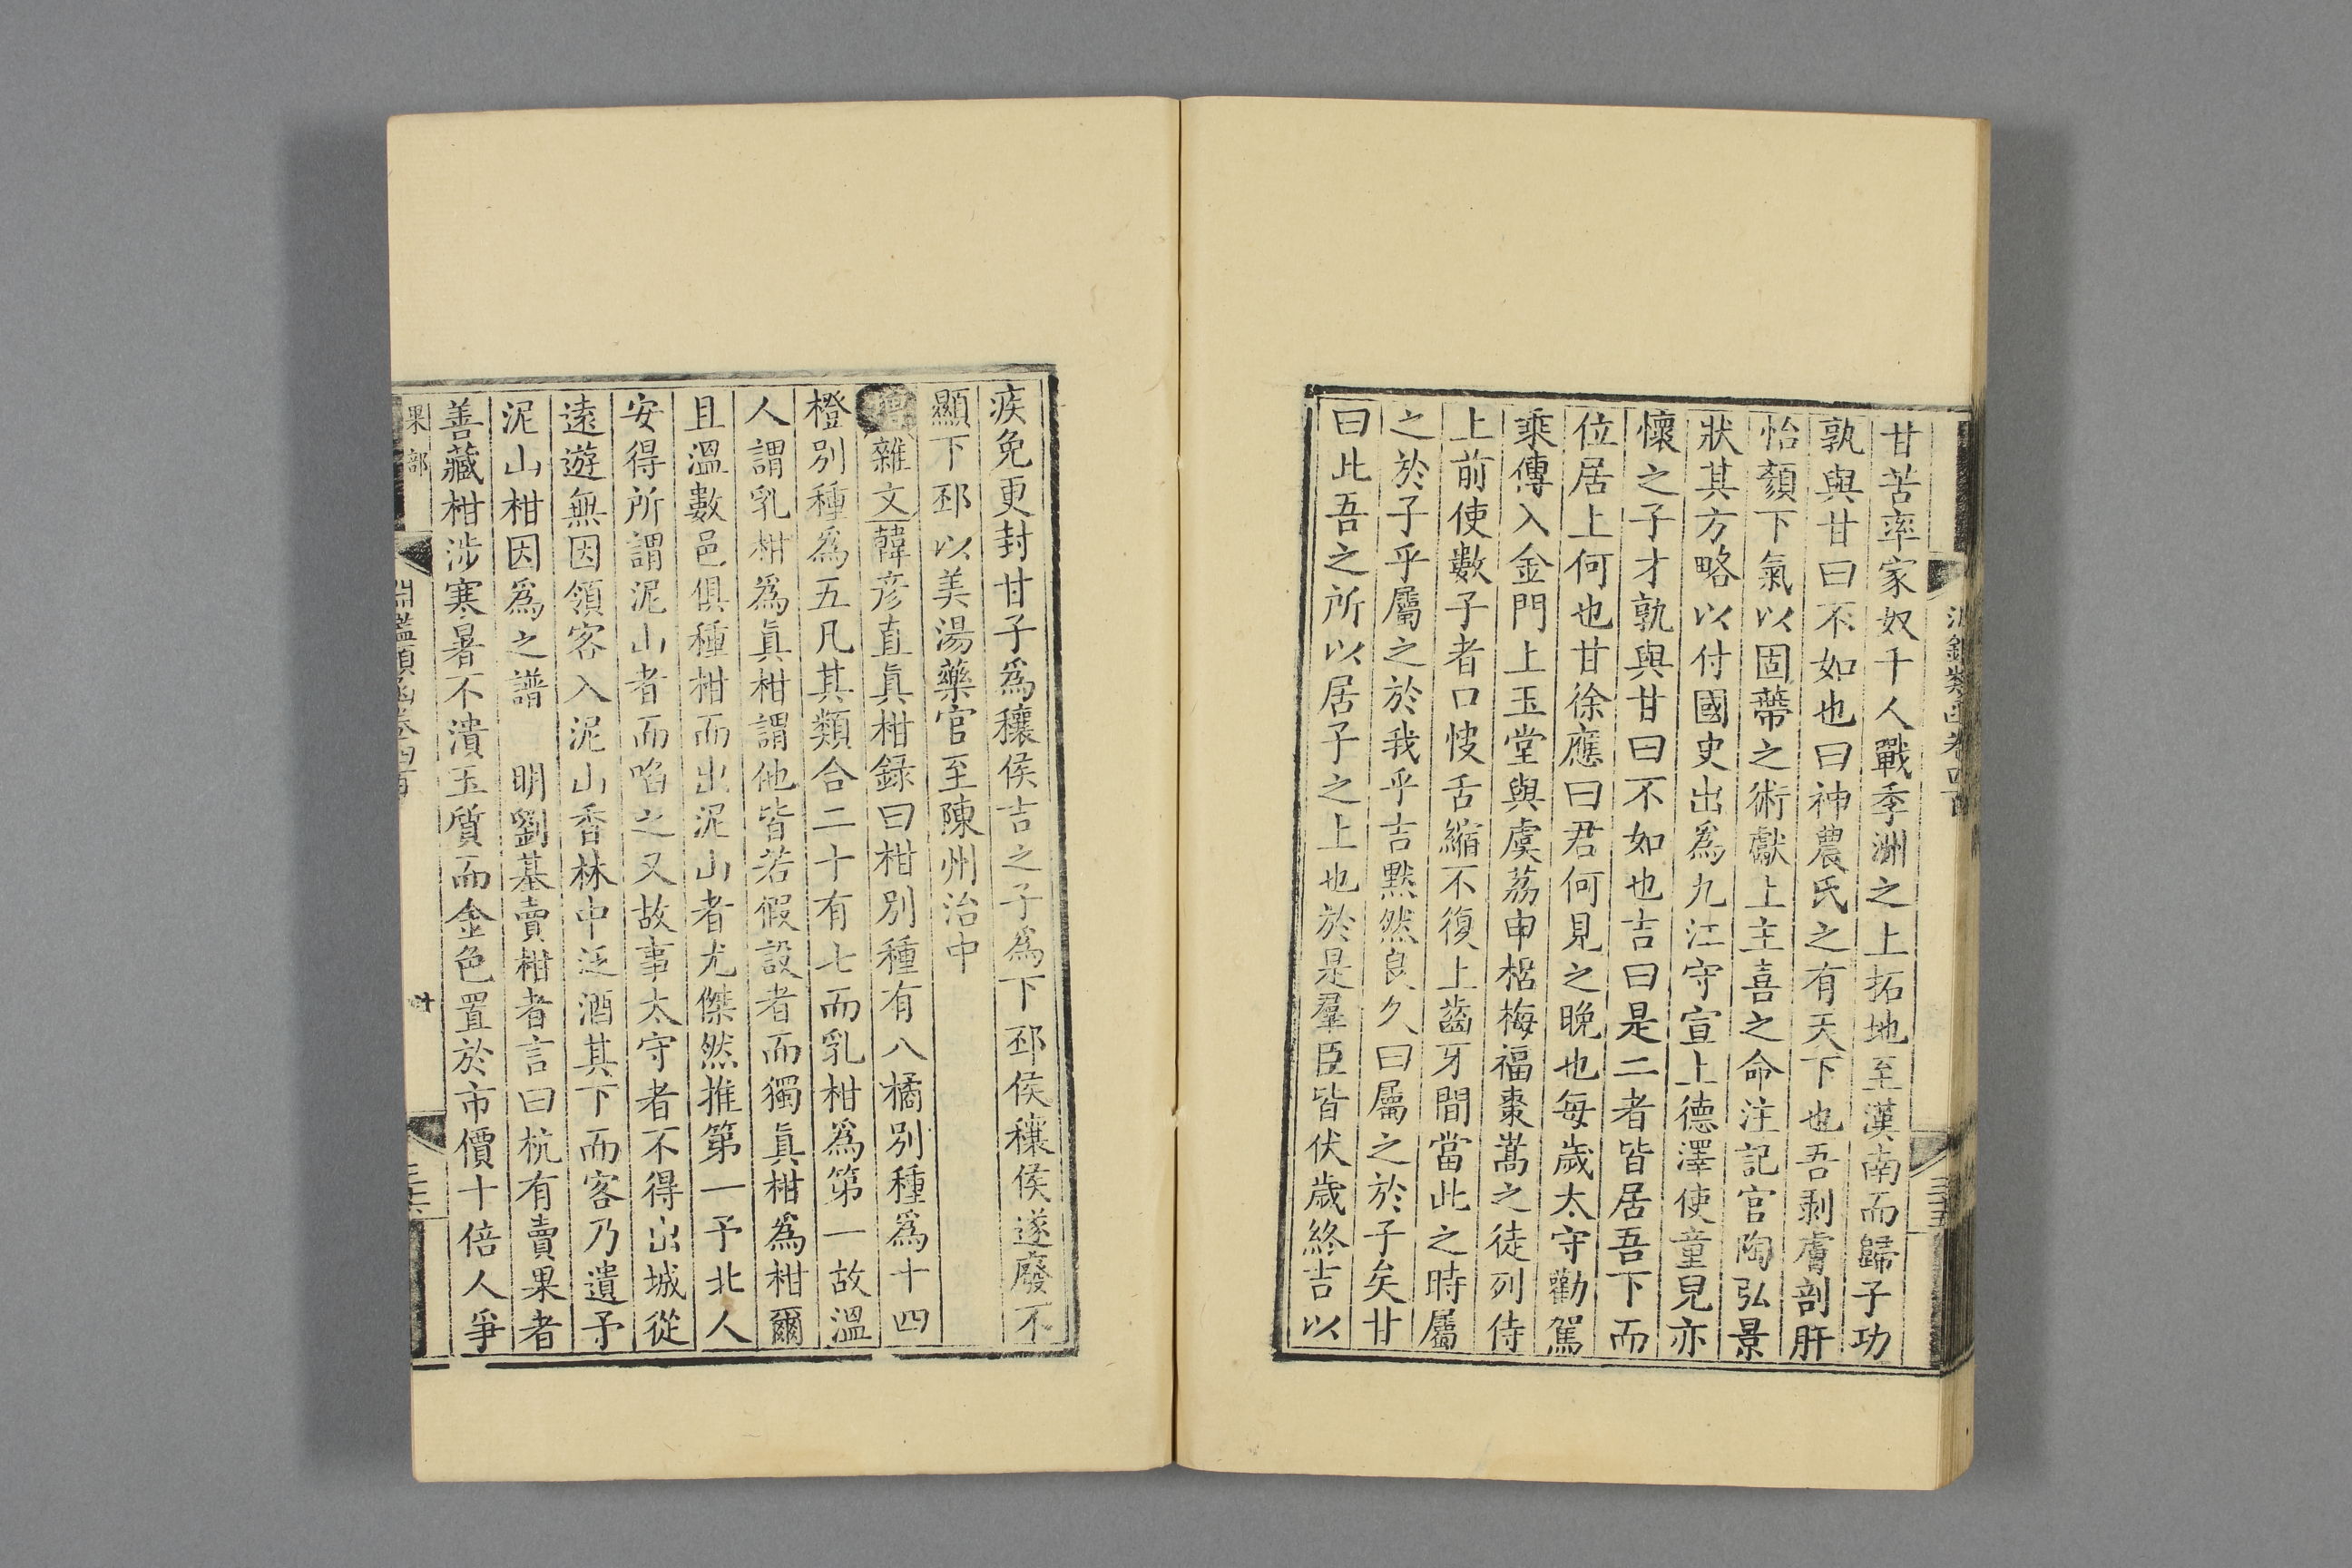 甘苦率家奴千人戰季洲之上拓地至漢南而歸子功
孰與甘曰不如也曰神農氏之有天下也吾剥膚剖肝
怡顏下氣以固蔕之術獻上主喜之命注記官陶弘景
狀其方略以付國史出爲九江守宣上德澤使童兒亦
懷之子才孰與甘曰不如也吉曰是二者皆居吾下而
位居上何也甘徐應曰君何見之晚也每歲太守勸駕
乘傳入金門上玉堂與虞荔申梠梅福棗嵩之徒列侍
上前使數子者口悛舌縮不復上齒牙間當此之時屬
之於子乎屬之於我乎吉默然良久曰屬之於子矣甘
曰此吾之所以居子之上也於是羣臣皆伏歲終吉以
疾免更封甘子爲穰侯吉之子爲下邳侯穰侯遂廢不
顯下邳以美湯藥官至陳州治中
雜文韓彦直眞柑錄曰柑別種有八橘別種爲十四
橙別種爲五凡其類合二十有七而乳柑爲第一故溫
人謂乳柑爲眞柑謂他皆若假設者而獨眞柑爲柑爾
且溫數邑俱種柑而出泥山者尤傑然推第一予北人
安得所謂泥山者而啗之又故事太守者不得出城從
遠遊無因領客入泥山香林中泛酒其下而客乃遺予
泥山柑因爲之譜　明劉基賣柑者言曰杭有賣果者
善藏柑涉寒暑不潰玉質而金色置於市價十倍人爭
果部